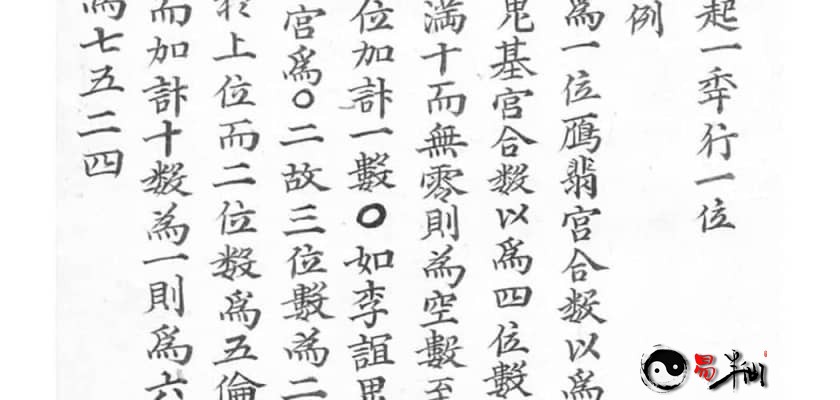 起一年行一位
例
為一位鴈翡宮合数以為
鬼基宮合数以為四位數
滿十而無零則為空數至
位加計一數〇如李誼思
宮為〇二故三位數為二
於上位而二位数為五倫
而加計十数為一則為六
為七五二四
易半仙